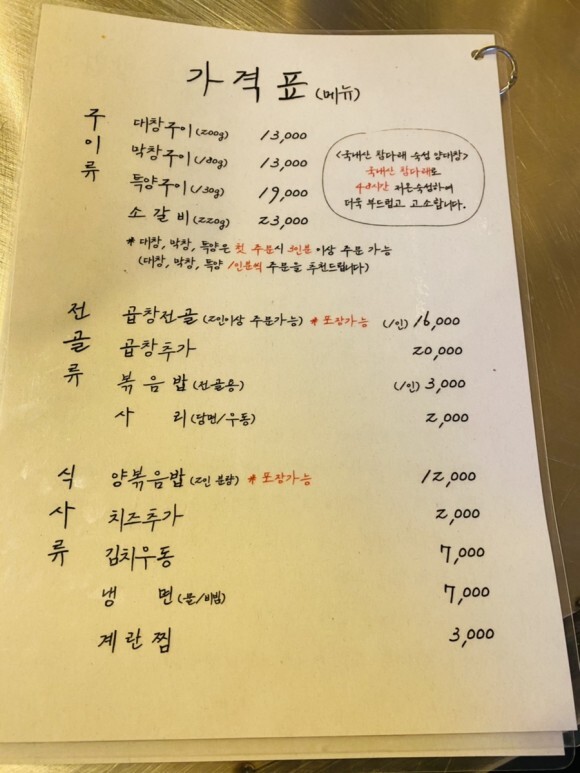 가격표(메뉴)
구이류
대창구이(200g) 13,000
막창구이(180g) 13,000
특양구이(130g) 19,000
소갈비(220g) 23,000
<국내산 참다래 숙성 양대창>
국내산 참다래로
48시간 저온숙성하여
더욱 부드럽고 고소합니다.
* 대창, 막창, 특양은 첫 주문시 3인분 이상 주문 가능
(대창, 막창, 특양 1인분씩 주문을 추천드립니다)
전골류
곱창전골(2인이상 주문가능) *포장가능 (1인) 16,000
곱창추가 20,000
볶음밥(전골용) (1인) 3,000
사리(당면/우동) 2,000
식사류
양볶음밥(2인 분량) *포장가능 12,000
치즈추가 2,000
김치우동 7,000
냉면(물/비빔) 7,000
계란찜 3,000